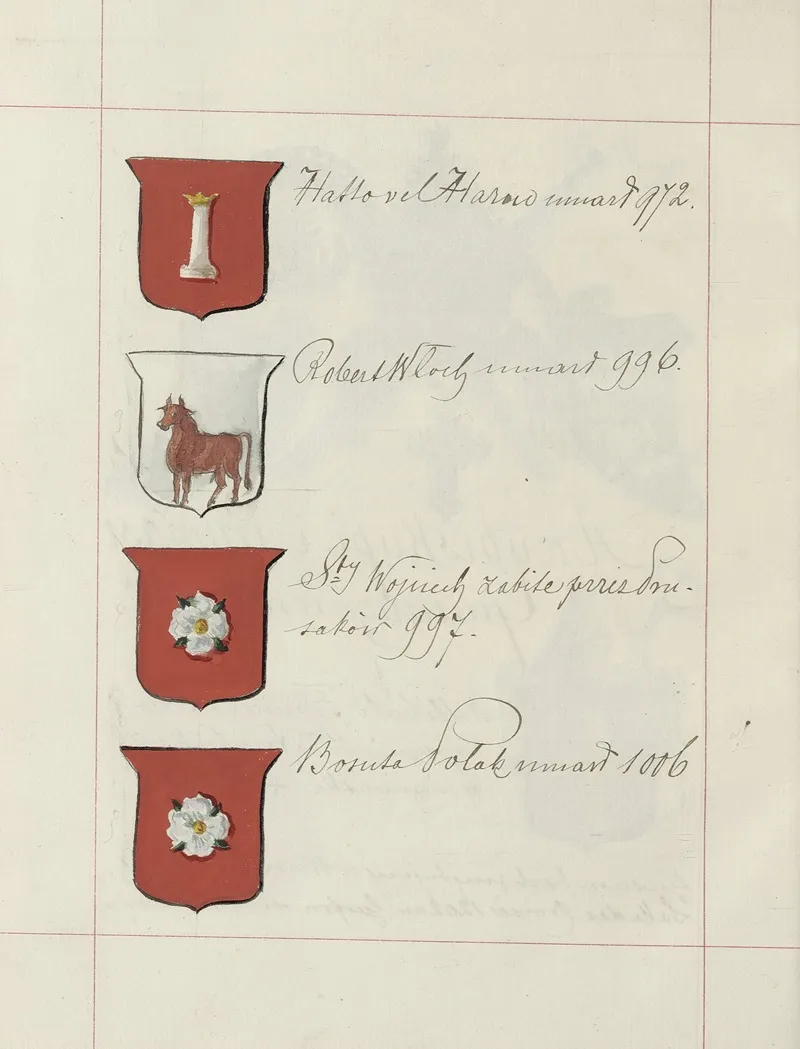 Hatto vel Harno umarł 972.
Robert Włoch umarł 996.
Sty Wojciech zabite przez Pru-
saków 997.
Bosuta Polak umarł 1006